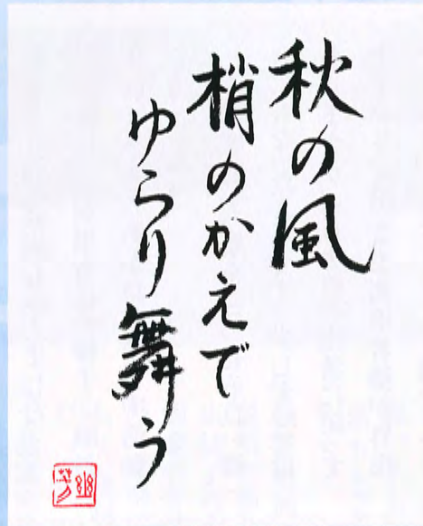 秋の風
梢のかえで
ゆらり舞う